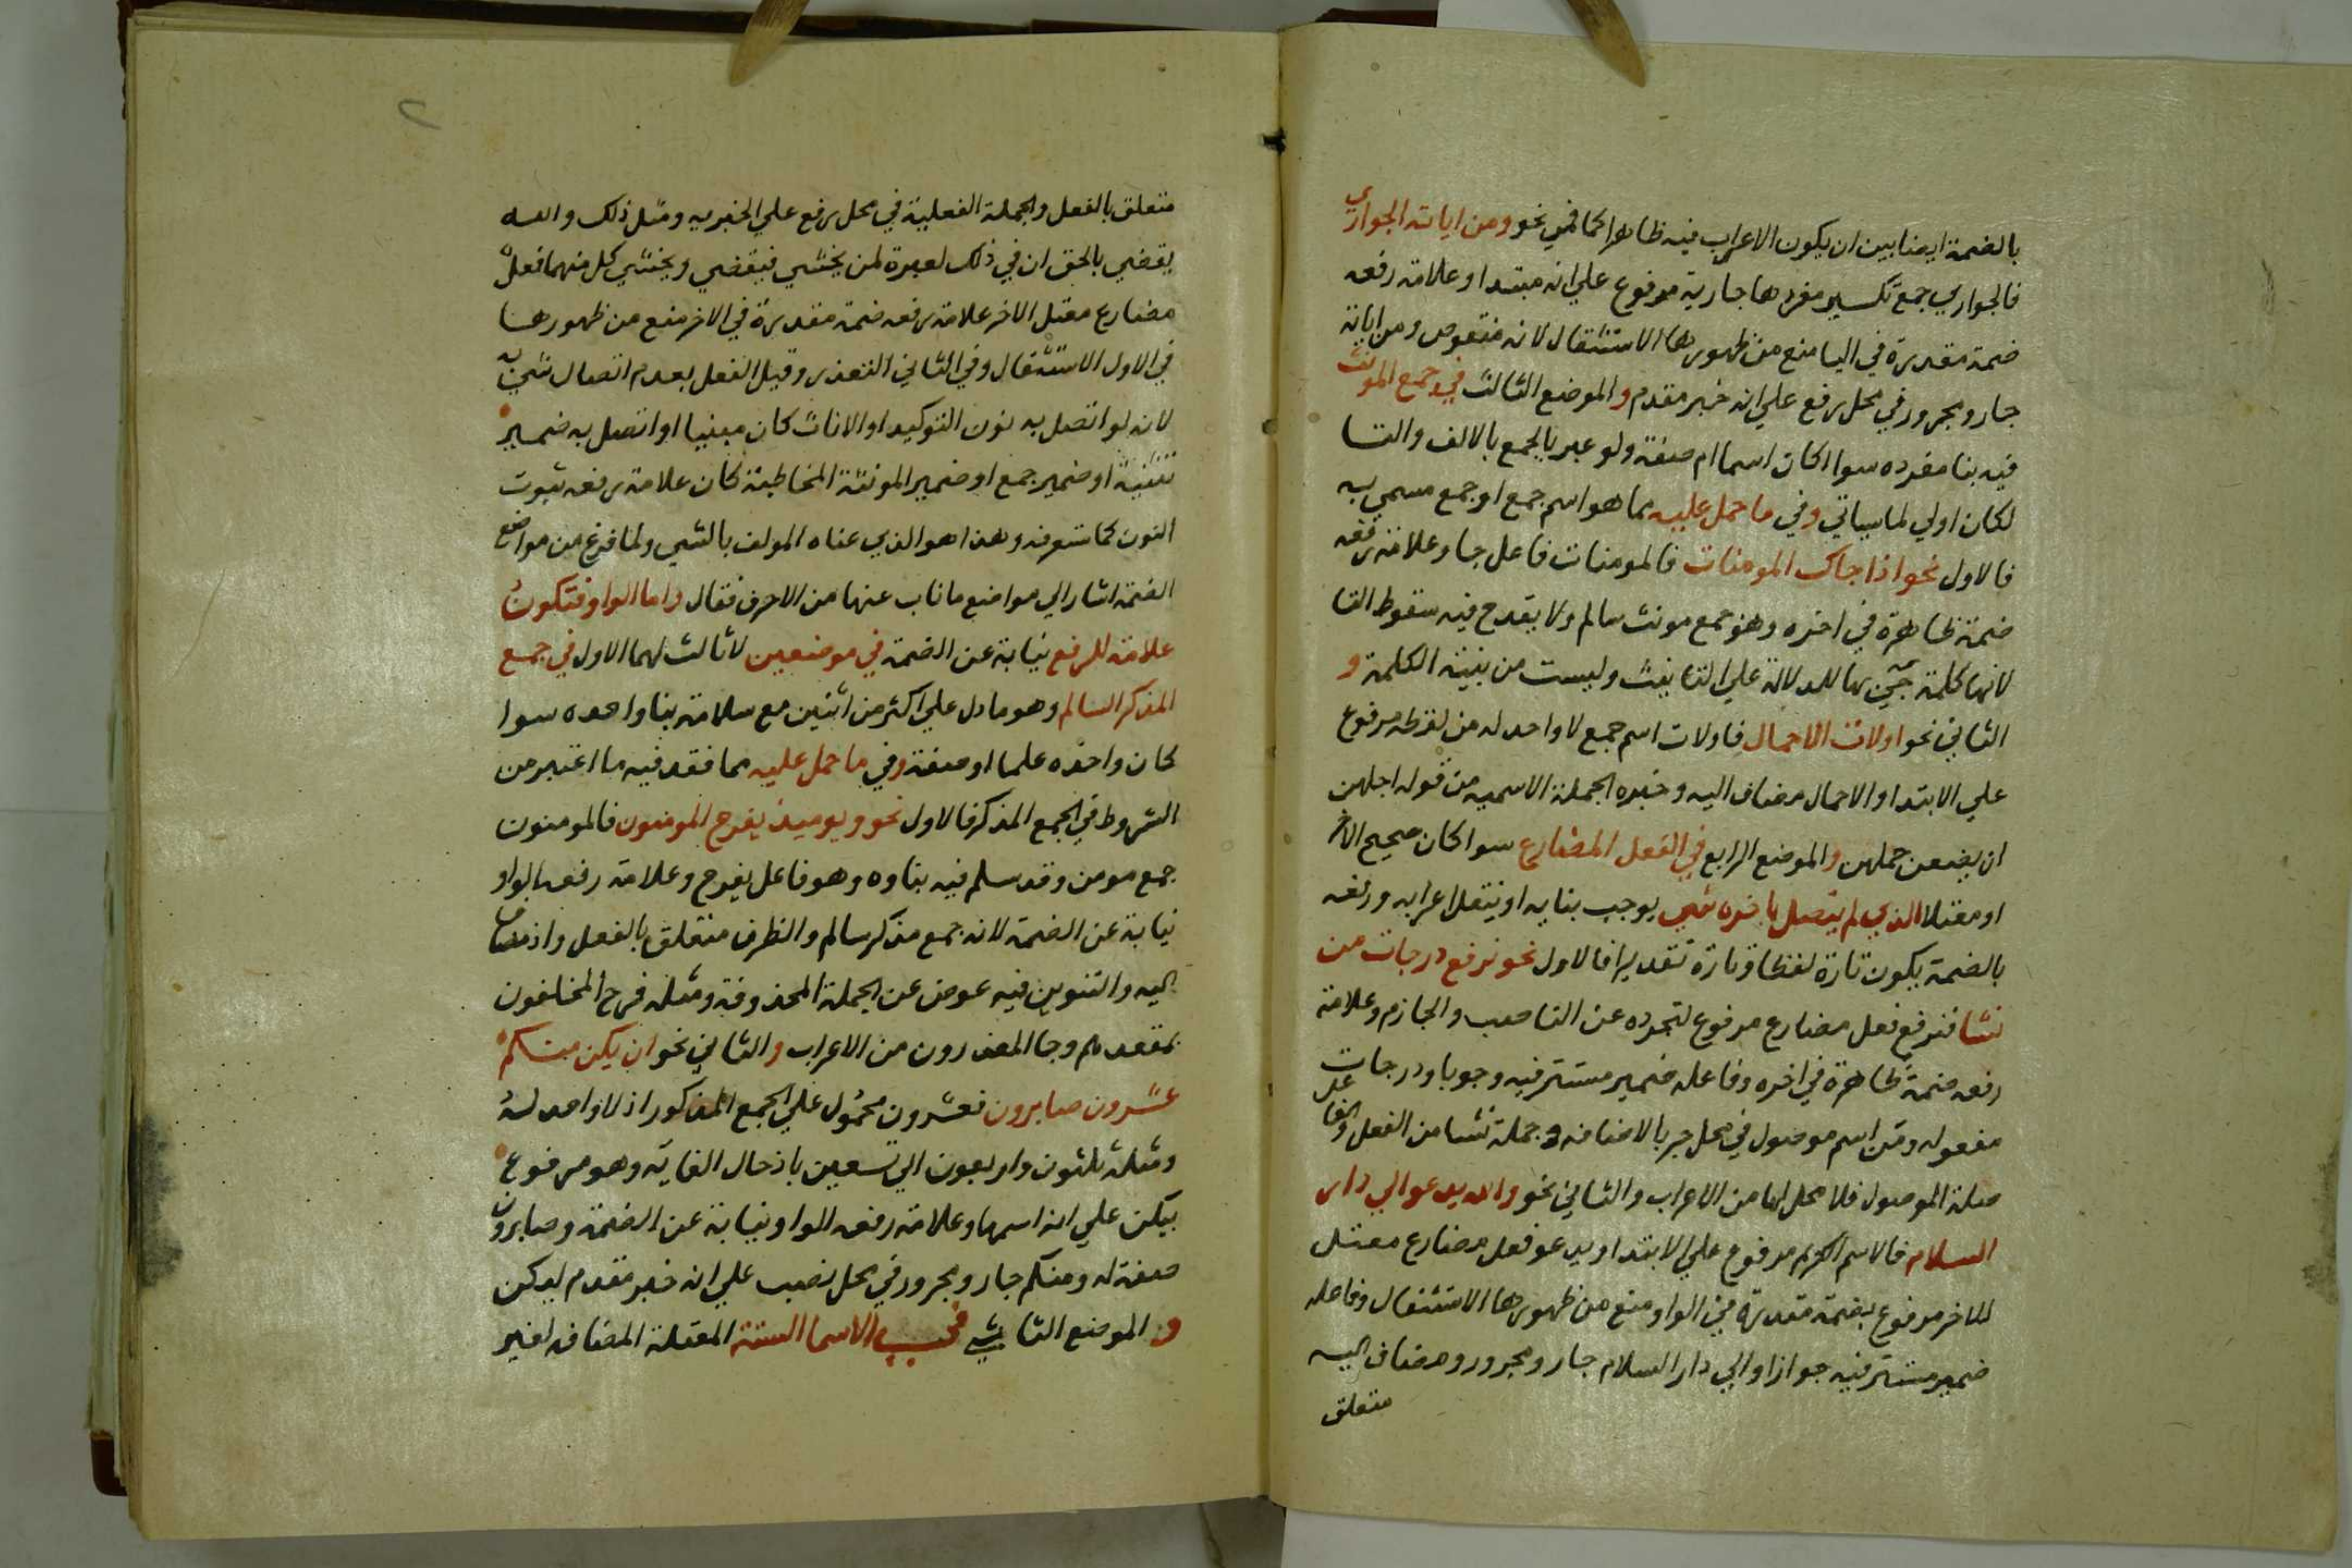 بالضمة ايضا بين ان يكون الاعراب فيه ظاهرا كما في نحو ومن اياته الجواري
فالجواري جمع تكسير مفردها جارية مرفوع علي انه مبتدا وعلامة رفعه
ضمة مقدرة في اليا منع من ظهورها الاستثقال لانه منقوص ومن اياته
جار ومجرور في محل رفع علي انه خبر مقدم والموضع الثالث في جمع المونث
فيه بنا مفرده سوا اكان اسما ام صفة ولو عبر بالجمع بالالف والتا
لكان اولي لما سياتي وفي ما حمل عليه مما هو اسم جمع او جمع مسمي به
فالاول نحو اذا جاك المومنات فالمومنات فاعل جا وعلامة رفعه
ضمة ظاهرة في اخره وهو جمع مونث سالم ولا يقدح فيه سقوط التا
لانها كلمة جيئ بها للدلالة علي التانيث وليست من بنية الكلمة و
الثاني نحو اولات الاحمال فاولات اسم جمع لا واحد له من لفظه مرفوع
علي الابتدا والاحمال مضاف اليه وخبره الجملة الاسمية من قوله اجلهن
ان يضعن حملهن والموضع الرابع في الفعل المضارع سوا كان صحيح الاخر
او معتلا الذي لم يتصل باخره شي يوجب بنايه او ينقل اعرابه ورفعه
بالضمة يكون تارة لفظا وتارة تقديرا فالاول نحو نرفع درجات من
نشا فنرفع فعل مضارع مرفوع لتجرده عن الناصب والجازم وعلامة
رفعه ضمة ظاهرة في اخره وفاعله ضمير مستتر فيه وجوبا ودرجات
مفعوله ومن اسم موصول في محل جر بالاضافة وجملة نشا من الفعل والفاعل
صلة الموصول فلا محل لها من الاعراب والثاني نحو والله يدعو الي دار
السلام فالاسم الكريم مرفوع علي الابتدا ويدعو فعل مضارع معتل
الاخر مرفوع بضمة مقدرة في الواو منع من ظهورها الاستثقال وفاعله
ضمير مستتر فيه جوازا والي دار السلام جار ومجرور ومضاف اليه
متعلق
متعلق بالفعل والجملة الفعلية في محل رفع علي الخبرية ومثل ذلك والله
يقضي بالحق ان في ذلك لعبرة لمن يخشي فيقضي ويخشي كل منهما فعل
مضارع معتل الاخر علامة رفعه ضمة مقدرة في الاخر منع من ظهورها
في الاول الاستثقال وفي الثاني التعذر وقيل الفعل بعدم اتصال شي به
لانه لو اتصل به نون التوكيد او الاناث كان مبنيا او اتصل به ضمير
تثنية او ضمير جمع او ضمير المونثة المخاطبة كان علامة رفعه ثبوت
النون كما ستعرفه وهذا هو الذي عناه المولف بالشي ولما فرغ من مواضع
الضمة اشار الي مواضع ما ناب عنها من الاحرف فقال واما الواو فتكون
علامة للرفع نيابة عن الضمة في موضعين لا ثالث لهما الاول في جمع
المذكر السالم وهو ما دل علي اكثر من اثنين مع سلامة بنا واحده سوا
كان واحده علما او صفة وفي ما حمل عليه مما فقد فيه ما اعتبر من
الشروط في الجمع المذكر فالاول نحو ويوميذ يفرح المومنون فالمومنون
جمع مومن وقد سلم فيه بناوه وهو فاعل يفرح وعلامة رفعه الواو
نيابة عن الضمة لانه جمع مذكر سالم والظرف متعلق بالفعل واذ مضاف
اليه والتنوين فيه عوض عن الجملة المحذوفة ومثله فرح المخلفون
بمقعدهم وجا المعذرون من الاعراب والثاني نحو ان يكن منكم
عشرون صابرون فعشرون محمول علي الجمع المذكور اذ لا واحد له
ومثله ثلثون واربعون الي تسعين باذحال الغاية وهو مرفوع
بيكن علي انه اسمها وعلامة رفعه الواو نيابة عن الضمة وصابرون
صفة له ومنكم جار ومجرور في محل نصب علي انه خبر مقدم ليكن
و الموضع الثاني في الاسما الستة المعتلة المضافه لغير